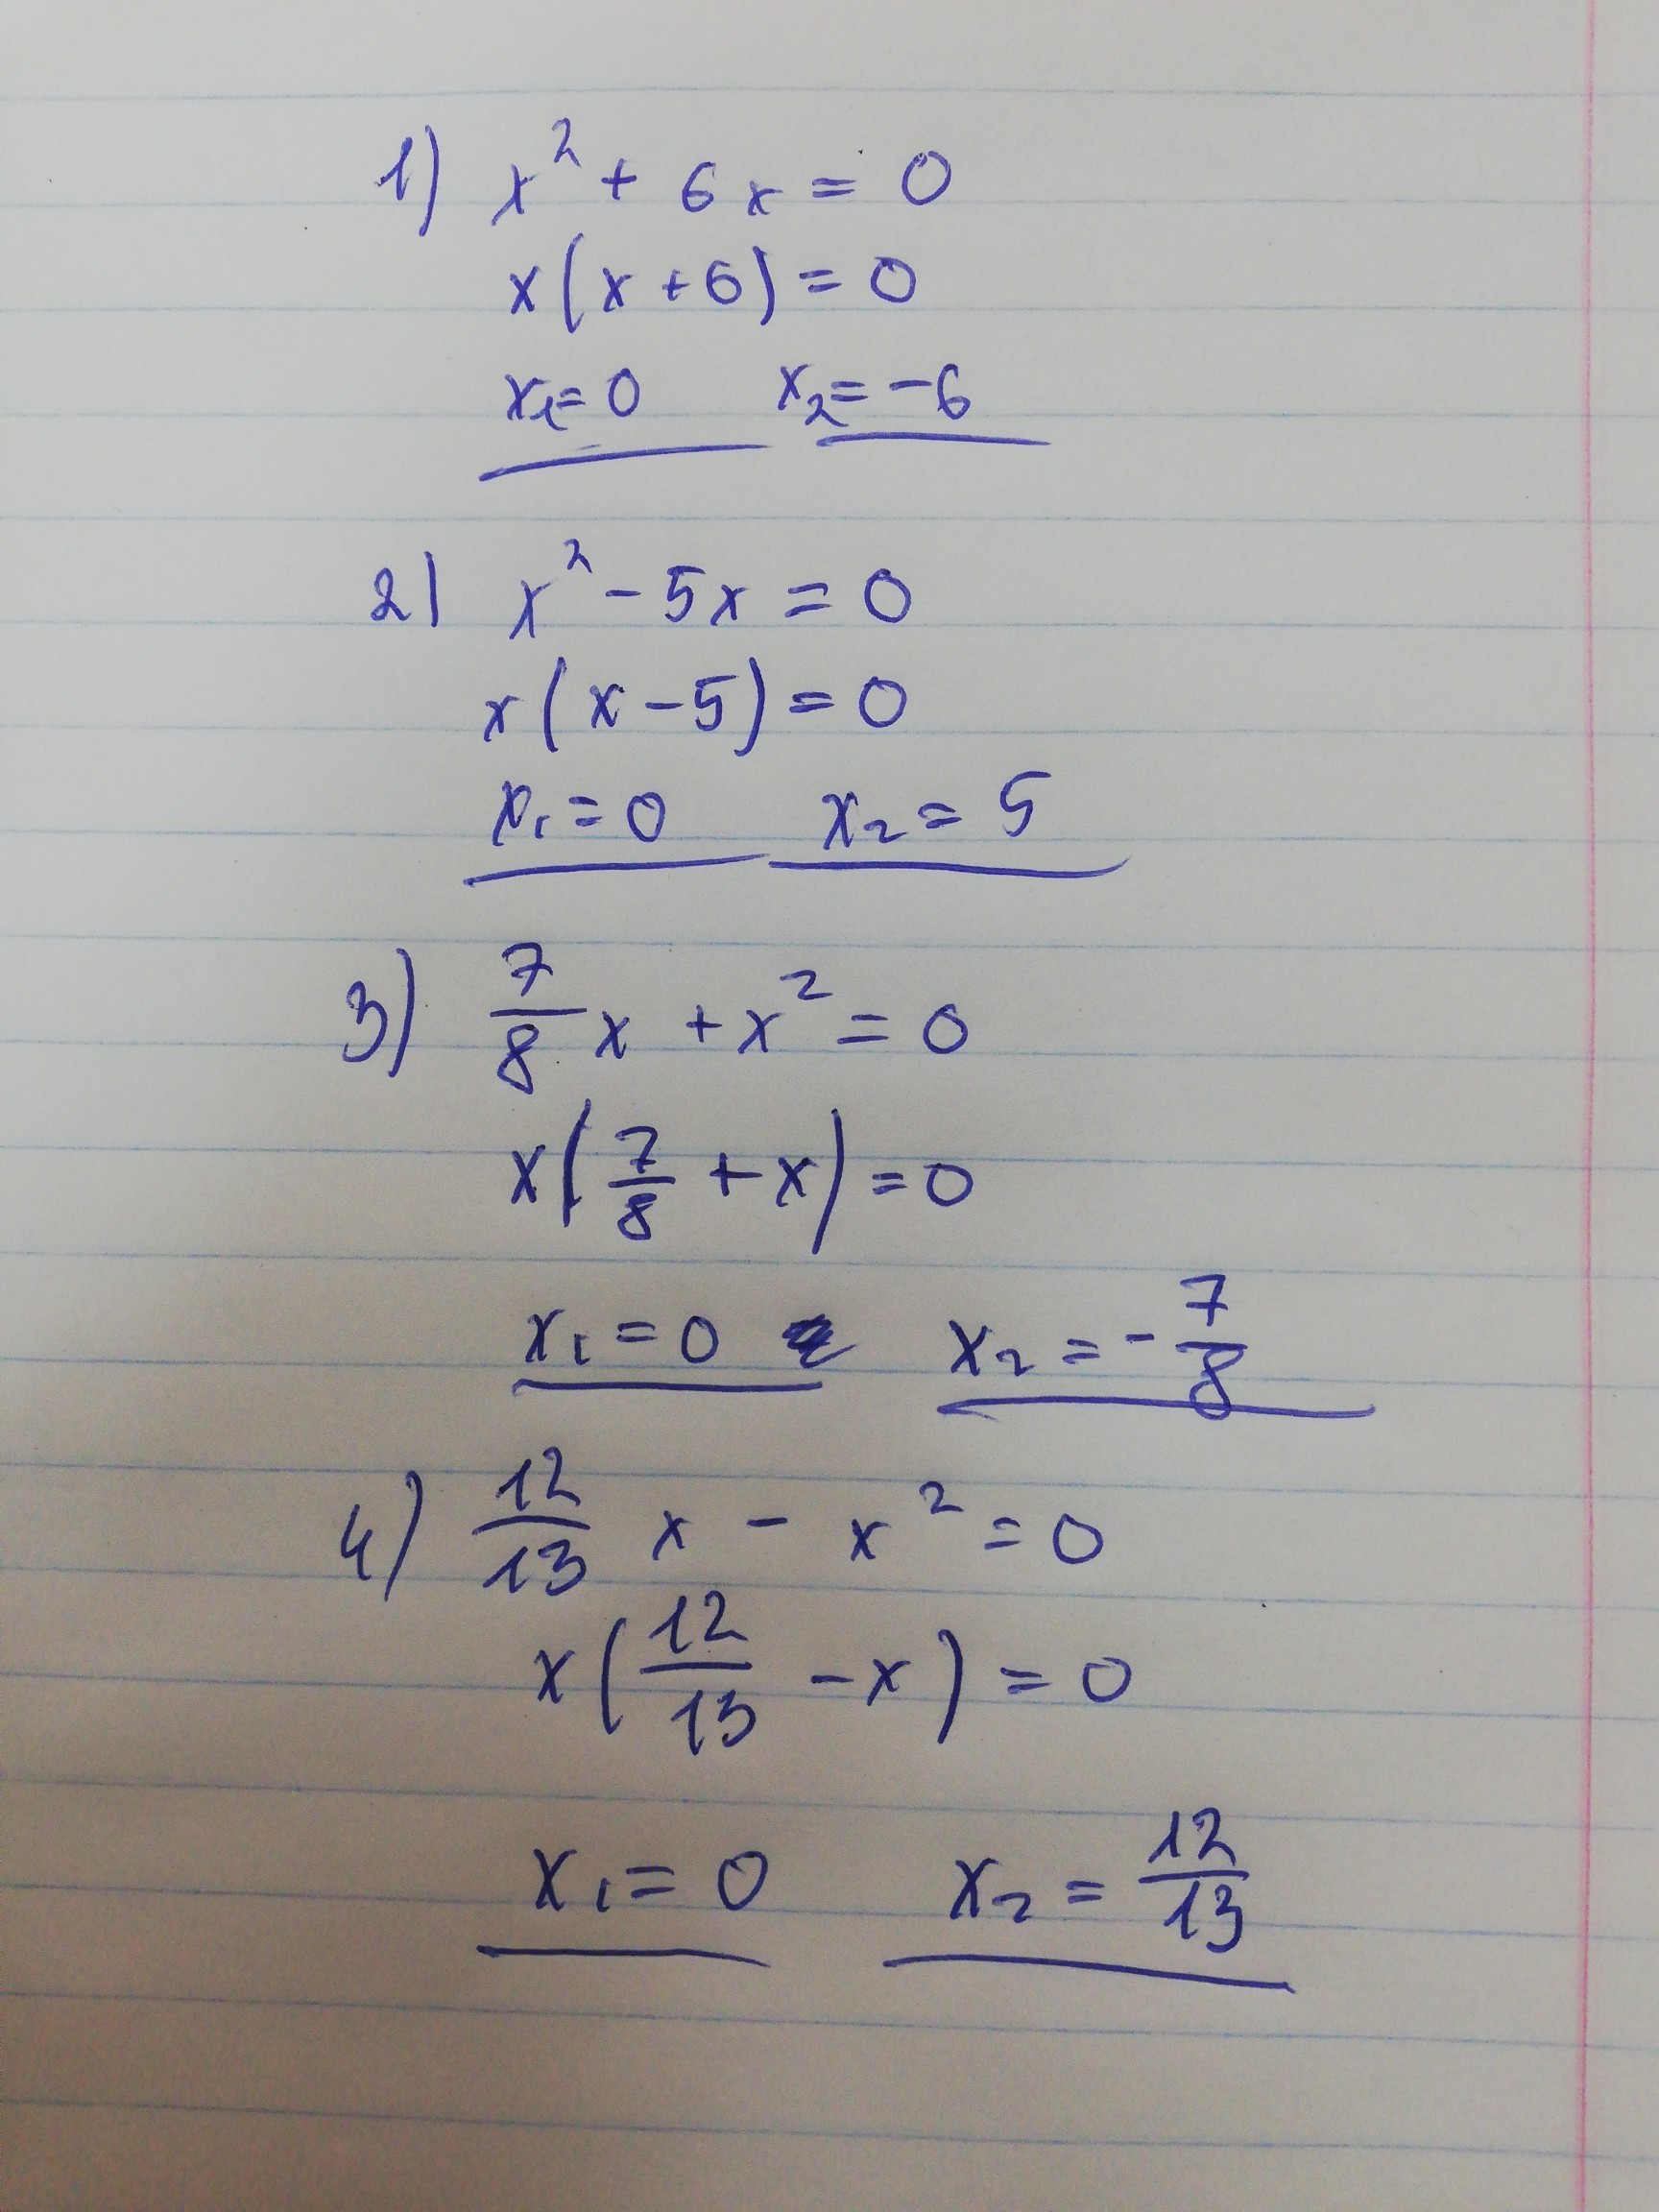 1) x² + 6x = 0
x(x + 6) = 0
x₁ = 0 x₂ = -6
2) x² - 5x = 0
x(x - 5) = 0
x₁ = 0 x₂ = 5
3) 7/8 x + x² = 0
x(7/8 + x) = 0
x₁ = 0 x₂ = -7/8
4) 12/13 x - x² = 0
x(12/13 - x) = 0
x₁ = 0 x₂ = 12/13